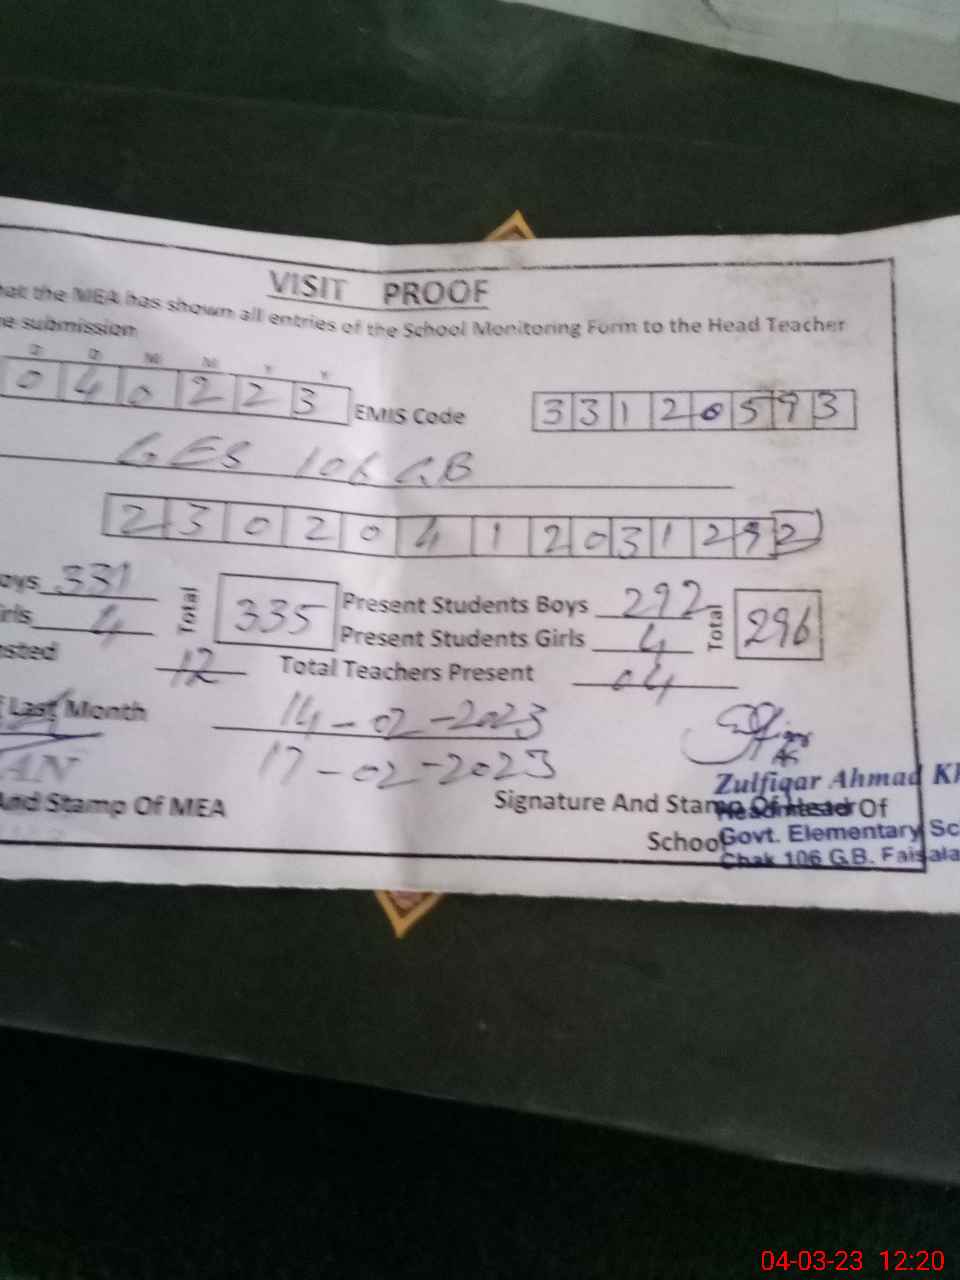 VISIT PROOF
hat the MEA has shown all entries of the School Monitoring Form to the Head Teacher
ne submission
D D M M Y Y
0 4 0 2 2 3 EMIS Code 3 3 1 2 0 5 9 3
GES 106 GB
2 3 0 2 0 4 1 2 0 3 1 2 9 2
oys 331 Total 335 Present Students Boys 292 Total 296
irls 4 Present Students Girls 4
osted 12 Total Teachers Present 04
f Last Month 14-02-2023
17-02-2023
AN
Zulfiqar Ahmad Kh
And Stamp Of MEA Signature And Stamp Of Head Of
School
Govt. Elementary Sc
Chak 106 G.B. Faisala
04-03-23 12:20